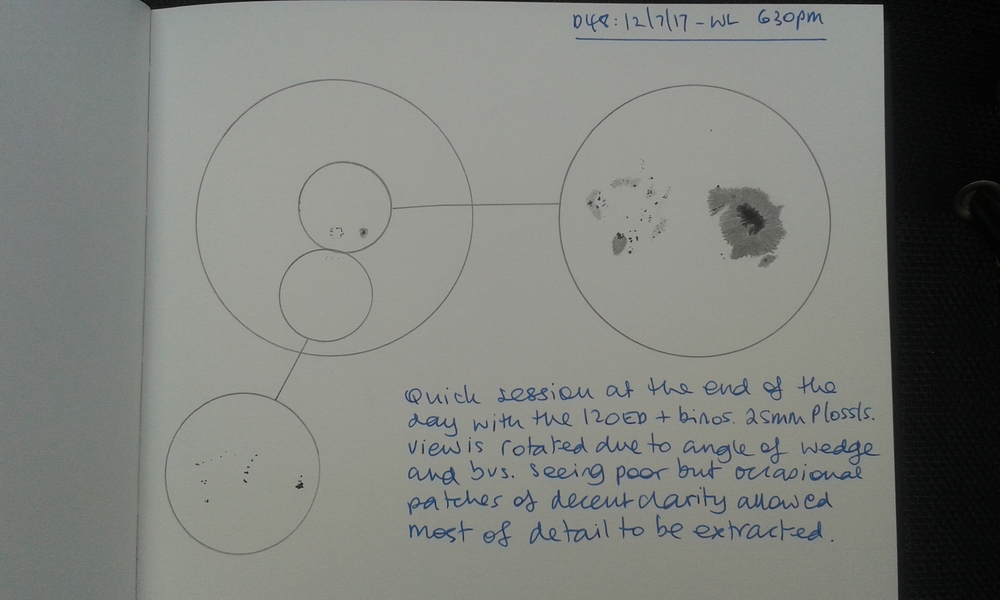 D48: 12/7/17 - WL 630pm
Quick session at the end of the
day with the 120ED + binos. 25mm Plossls.
view is rotated due to angle of wedge
and bvs. Seeing poor but occasional
patches of decent clarity allowed
most of detail to be extracted.